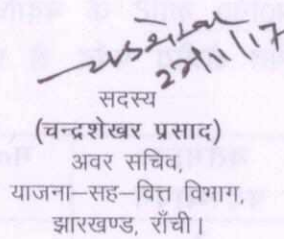 सदस्य
(चन्द्रशेखर प्रसाद)
अवर सचिव,
याजना–सह–वित्त विभाग,
झारखण्ड, राँची।